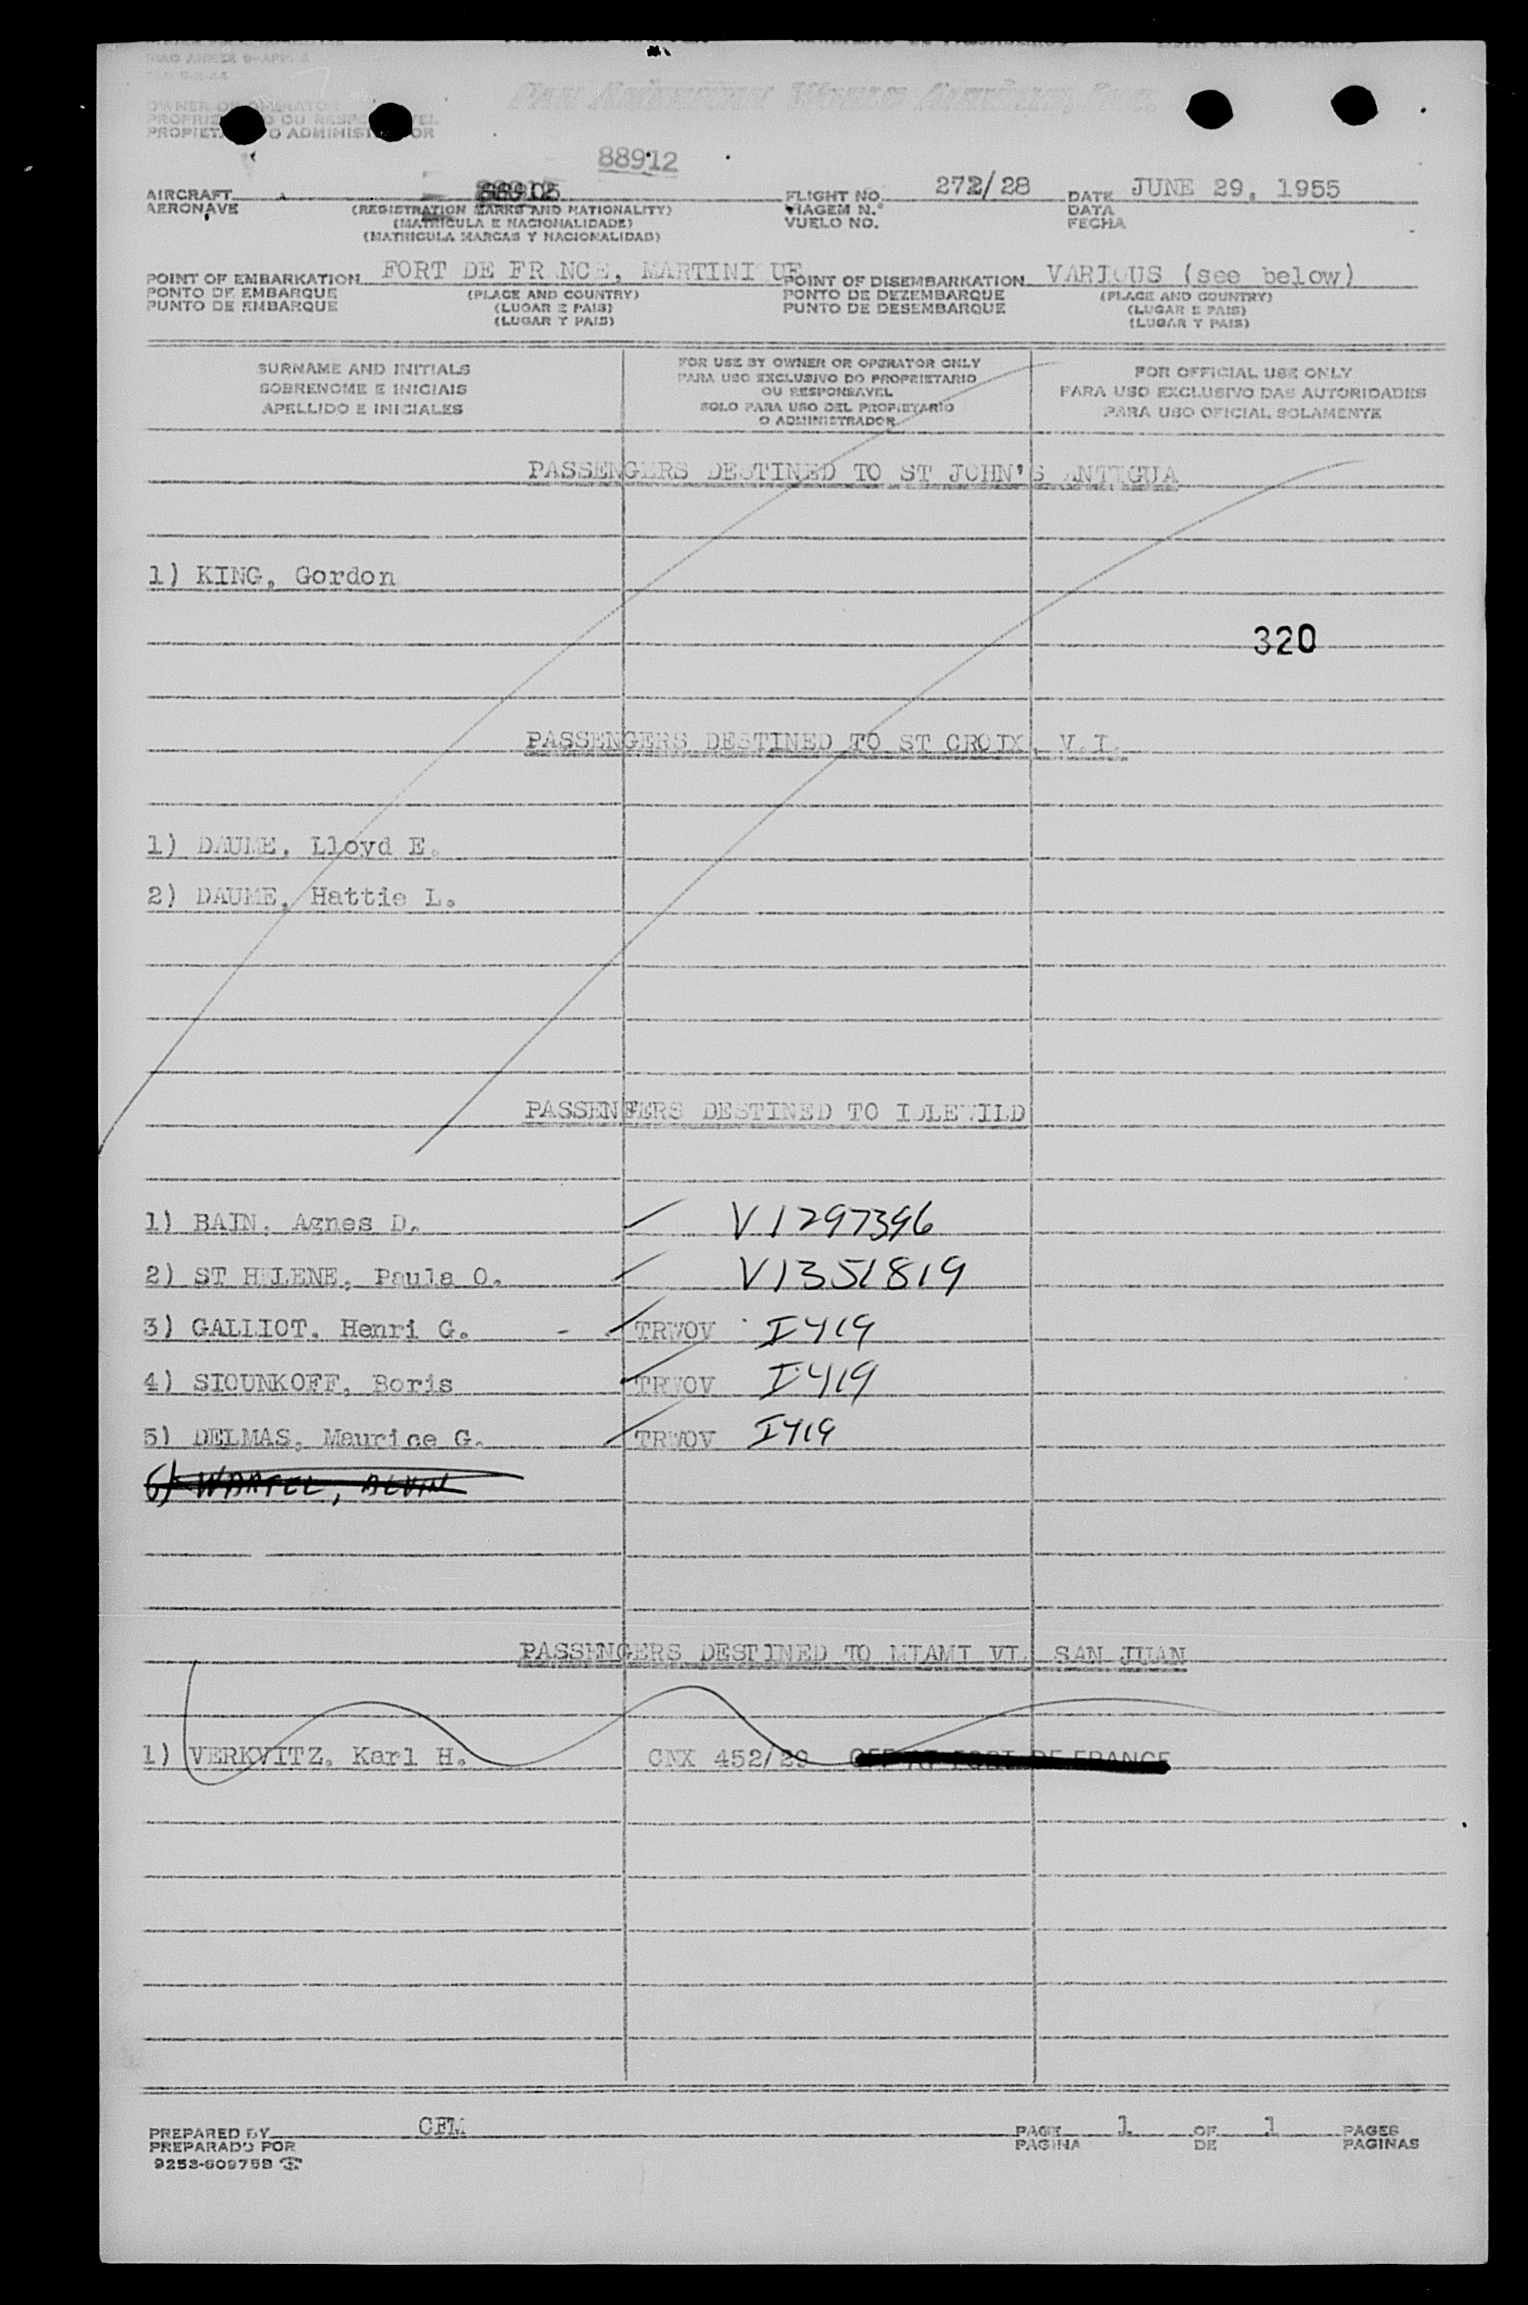 ICAO ANNEX 9-APP. A
OWNER OR OPERATOR
PAN AMERICAN WORLD AIRWAYS, INC.
PROPRIETARIO OU RESPONSAVEL
PROPIETARIO O ADMINISTRADOR
88912
AIRCRAFT 88905 FLIGHT NO. 272/28 DATE JUNE 29, 1955
AERONAVE (REGISTRATION MARKS AND NATIONALITY) VIAGEM N.° DATA
(MATRICULA E NACIONALIDADE) VUELO NO. FECHA
(MATRICULA MARCAS Y NACIONALIDAD)
POINT OF EMBARKATION FORT DE FR NCE, MARTINI UE POINT OF DISEMBARKATION VARIOUS (see below)
PONTO DE EMBARQUE (PLACE AND COUNTRY) PONTO DE DEZEMBARQUE (PLACE AND COUNTRY)
PUNTO DE EMBARQUE (LUGAR E PAIS) PUNTO DE DESEMBARQUE (LUGAR E PAIS)
(LUGAR Y PAIS) (LUGAR Y PAIS)
SURNAME AND INITIALS
SOBRENOME E INICIAIS
APELLIDO E INICIALES
FOR USE BY OWNER OR OPERATOR ONLY
PARA USO EXCLUSIVO DO PROPRIETARIO
OU RESPONSAVEL
SOLO PARA USO DEL PROPIETARIO
O ADMINISTRADOR
FOR OFFICIAL USE ONLY
PARA USO EXCLUSIVO DAS AUTORIDADES
PARA USO OFICIAL SOLAMENTE
PASSENGERS DESTINED TO ST JOHN'S ANTIGUA
1) KING, Gordon
320
PASSENGERS DESTINED TO ST CROIX, V.I.
1) DAUME, Lloyd E.
2) DAUME, Hattie L.
PASSENGERS DESTINED TO IDLEWILD
1) BAIN, Agnes D. V1297396
2) ST HELENE, Paula O. V1351819
3) GALLIOT, Henri G. TRWOV I419
4) SIOUNKOFF, Boris TRWOV I419
5) DELMAS, Maurice G. TRWOV I419
6) WARTEL, ALVIN
PASSENGERS DESTINED TO MIAMI VIA SAN JUAN
1) VERKVITZ, Karl H. CNX 452/29 OFF AT FORT DE FRANCE
PREPARED BY CFM PAGE 1 OF 1 PAGES
PREPARADO POR PAGINA DE PAGINAS
9253-609759